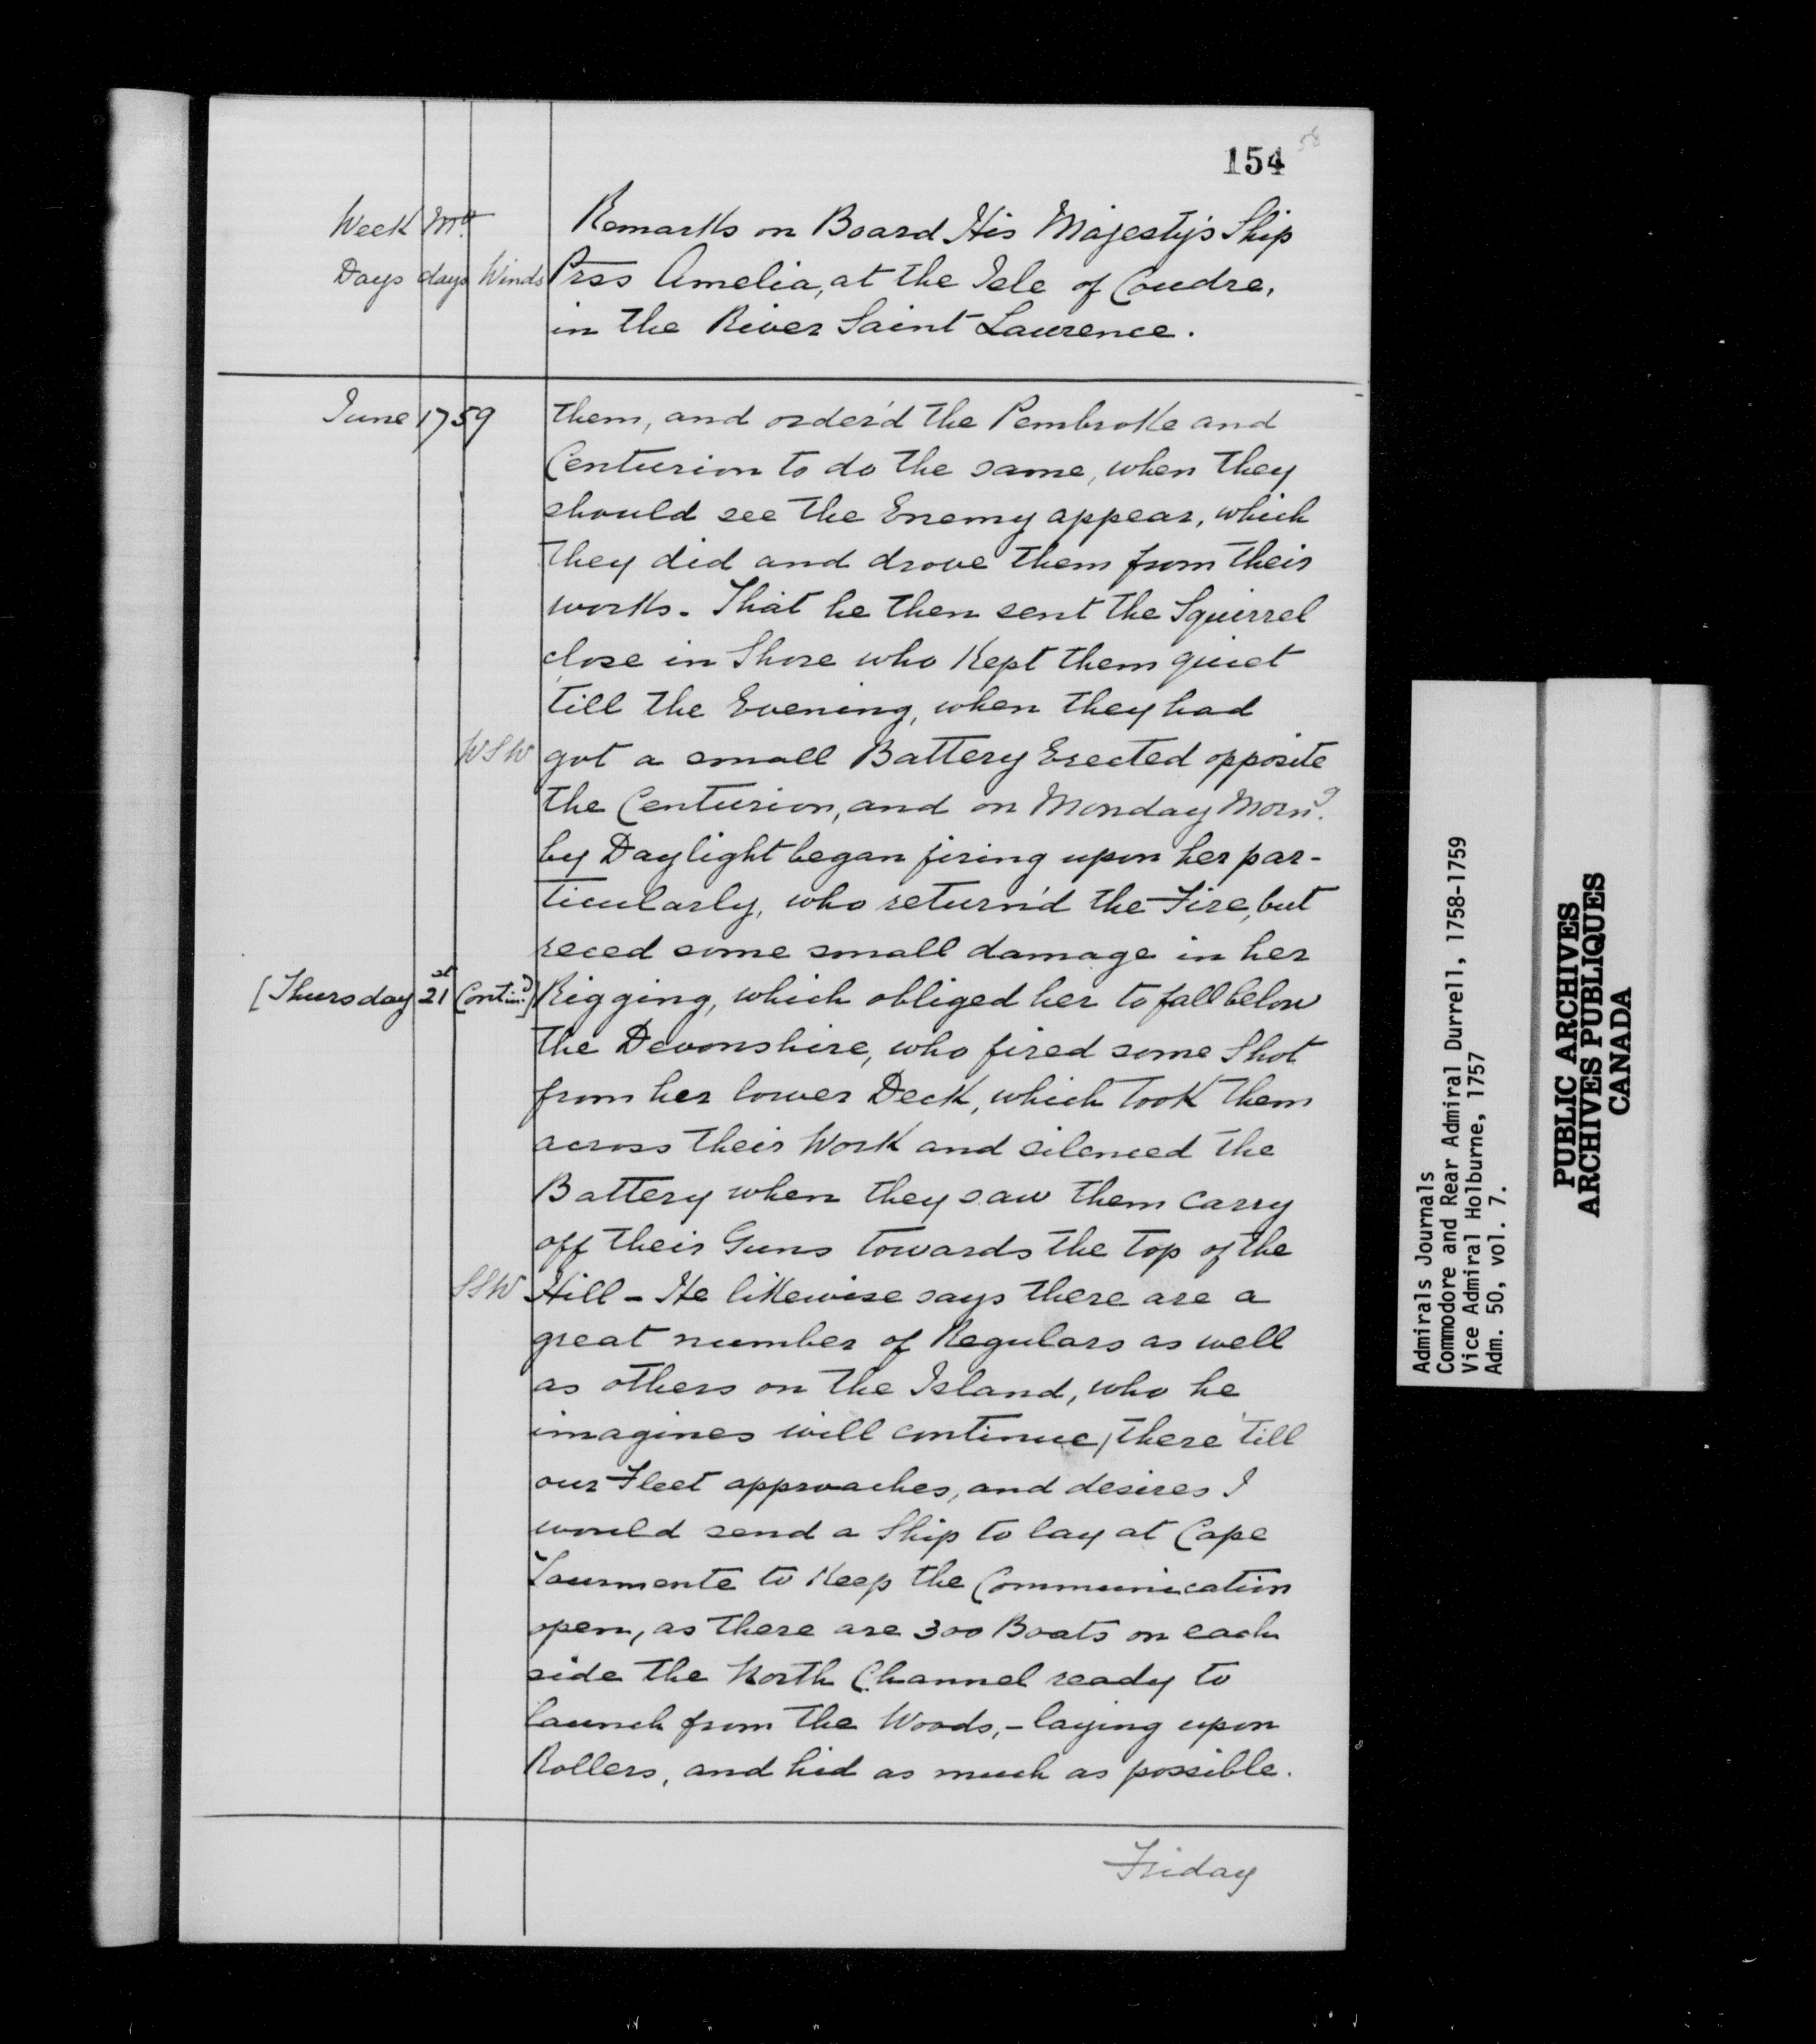 154 58
Week Mo. Remarks on Board His Majesty's Ship
Days days Winds Prss Amelia, at the Isle of Coudre,
in the River Saint Laurence.
June 1759 them, and order'd the Pembroke and
Centurion to do the same, when they
should see the Enemy appear, which
they did and drove them from their
works. That he then sent the Squirrel
close in Shore who Kept them quiet
till the Evening, when they had
WSW got a small Battery Erected opposite
the Centurion, and on Monday Morng.
by Daylight began firing upon her par-
ticularly, who return'd the Fire, but
reced some small damage in her
[Thursday 21st Contind.] Rigging, which obliged her to fall below
the Devonshire, who fired some Shot
from her lower Deck, which took them
across their Work and silenced the
Battery when they saw them carry
off their Guns towards the top of the
SSW Hill - He likewise says there are a
great number of Regulars as well
as others on the Island, who he
imagines will continue, there 'till
our Fleet approaches, and desires I
would send a Ship to lay at Cape
Tourmente to Keep the Communication
open, as there are 300 Boats on each
side the North Channel ready to
launch from the Woods, - laying upon
Rollers, and hid as much as possible.
Friday
Admirals Journals
Commodore and Rear Admiral Durrell, 1758-1759
Vice Admiral Holburne, 1757
Adm. 50, vol. 7.
PUBLIC ARCHIVES
ARCHIVES PUBLIQUES
CANADA